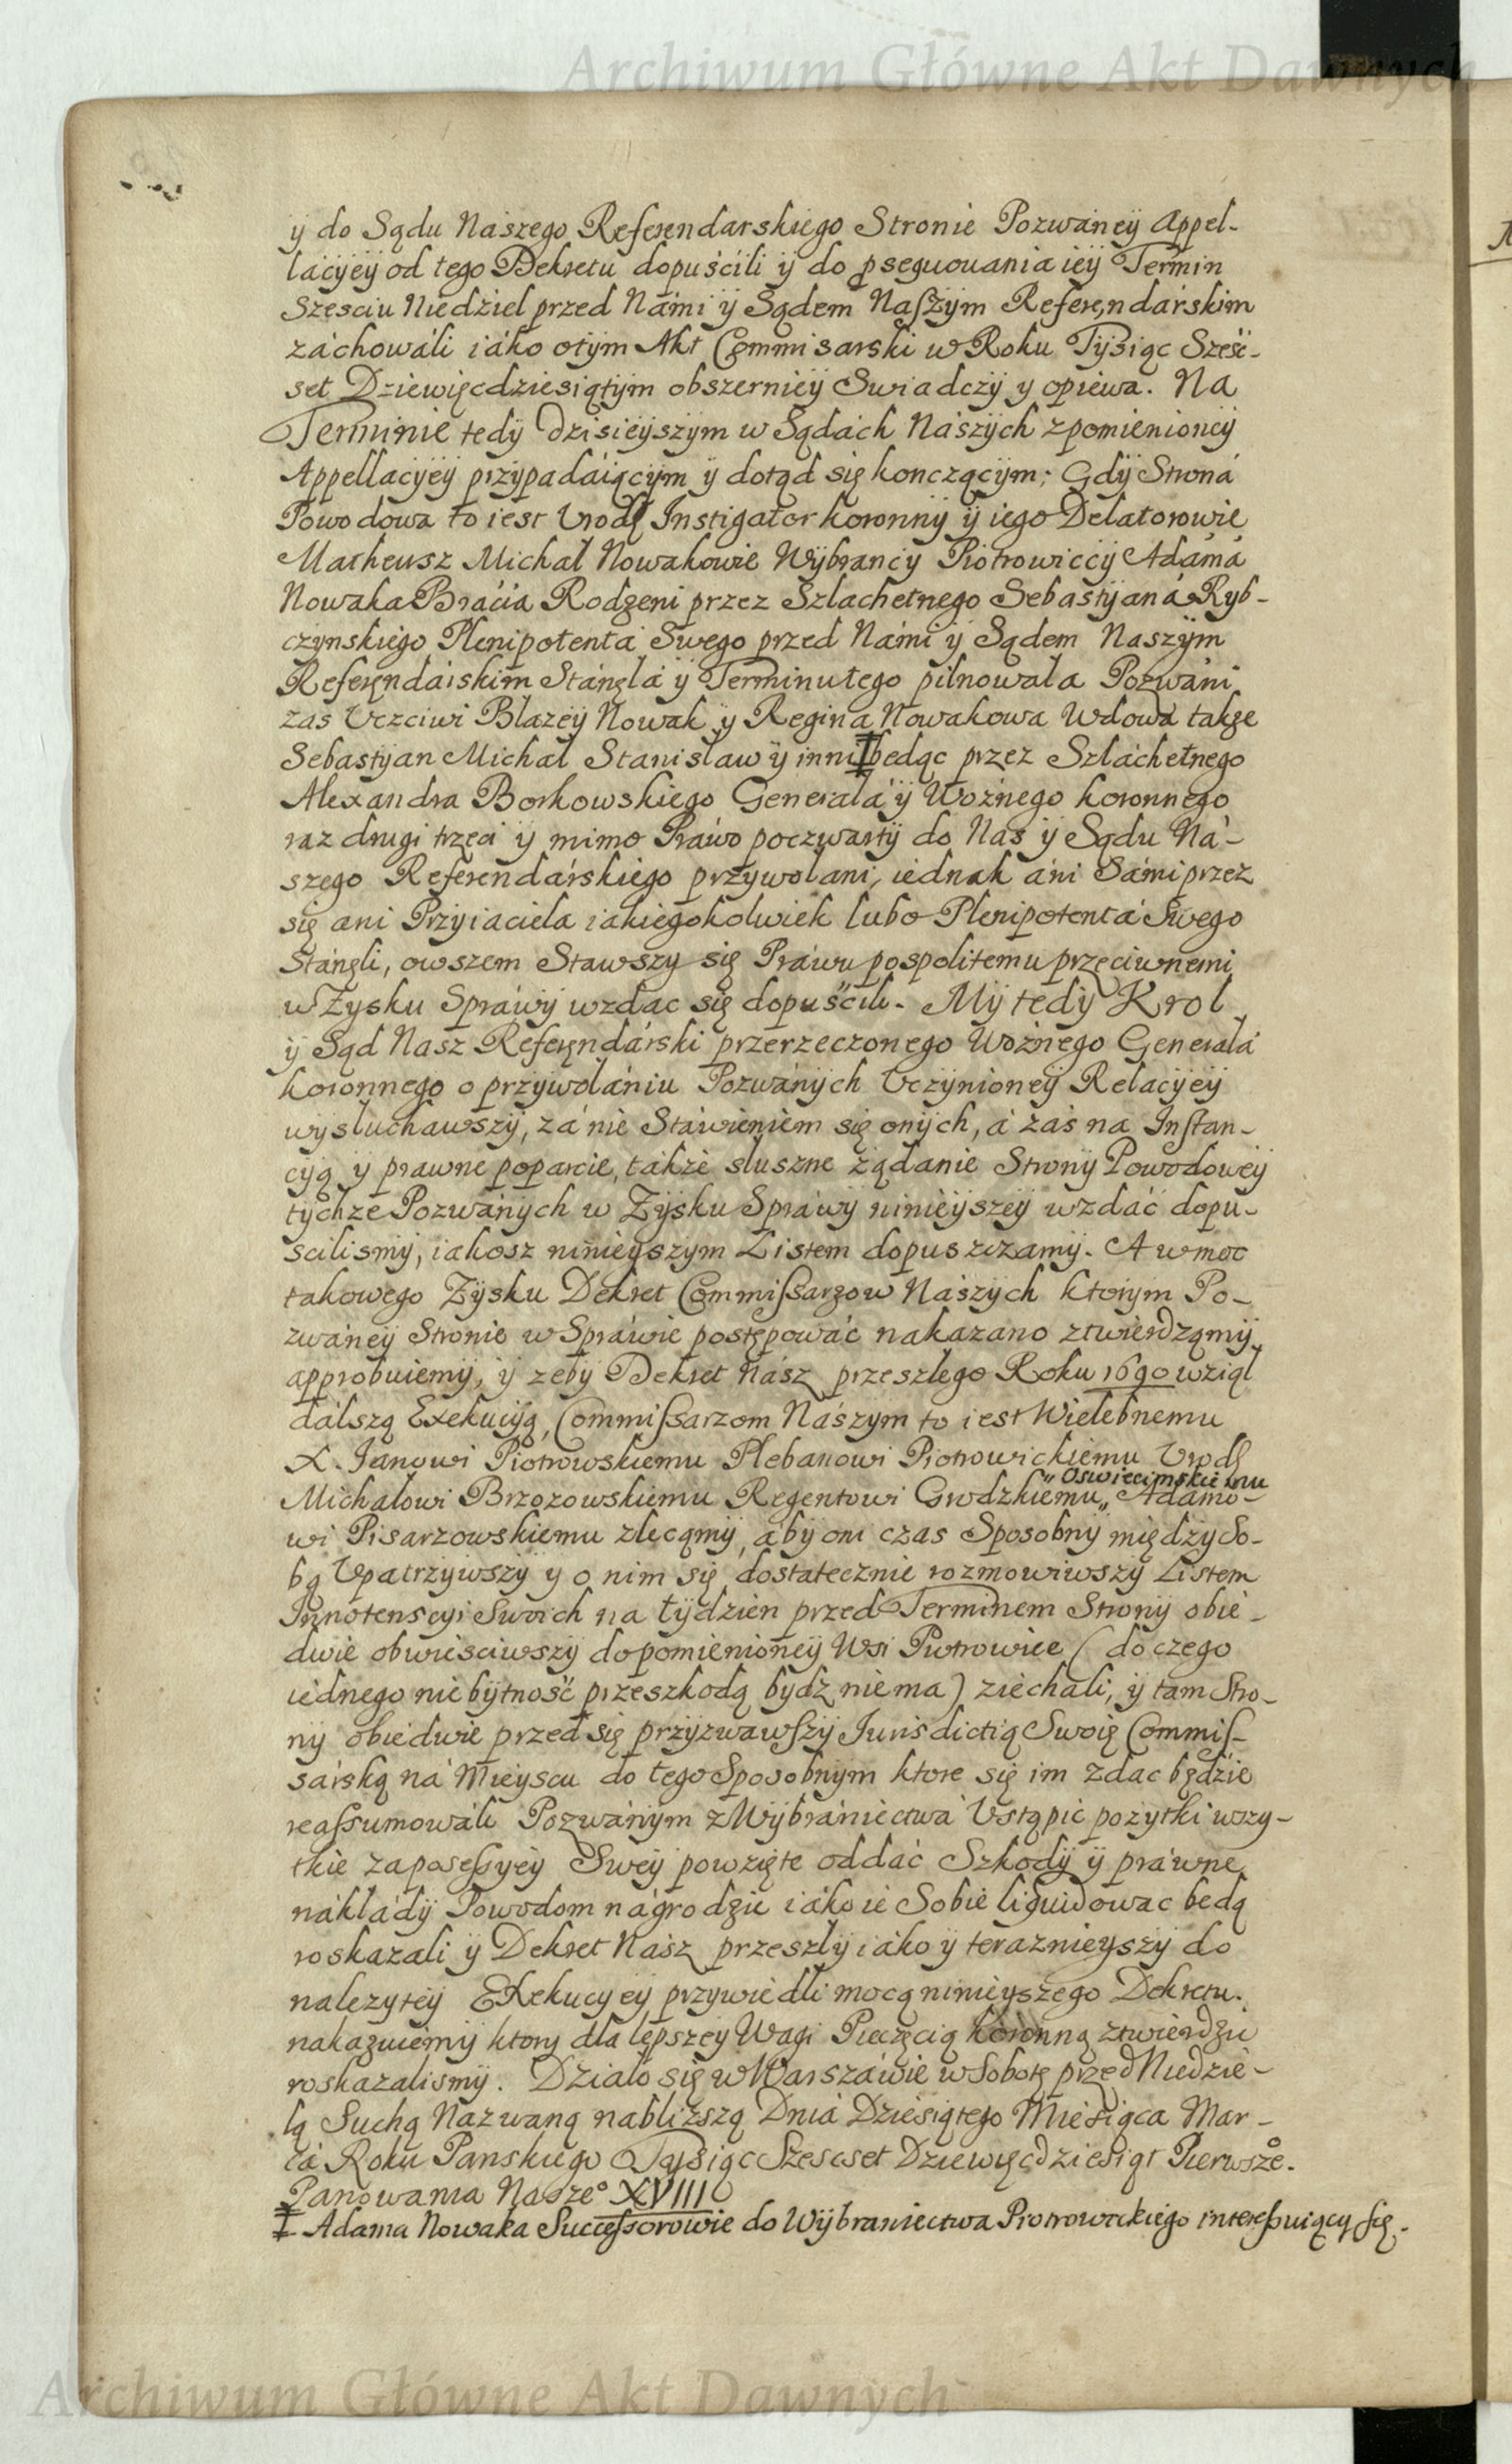 Archiwum Główne Akt Dawnych
ÿ do Sądu Naszego Referendarskiego Stronie Pozwaneÿ Appel-
lacÿeÿ od tego Dekretu dopuścili ÿ do pseguouania ieÿ Termin
Szesciu Niedziel przed Nami ÿ Sądem Naſzÿm Referęndarskim
záchowáli iáko otÿm Akt Commisarski w Roku Tÿsiąc Sześć-
set Dziewięcdziesiątÿm obszernieÿ Swiadczÿ y opiewa. Na
Terminie tedÿ dzisieÿszÿm w Sądách Naszÿch zpomienioneÿ
Appellacÿeÿ przÿpadáiącÿm ÿ dotąd się konczącÿm; Gdÿ Stroná
Powodowa to iest Vrodź Instigator koronnÿ ÿ iego Delatorowie
Matheusz Michał Nowakowie Wÿbrancÿ Piotrowiccÿ Adámá
Nowaka Brácia Rodzeni przez Szlachetnego Sebastÿaná Ryb-
czÿnskiego Plenipotentá Swego przed Námi ÿ Sądem Naszÿm
Referęndárskim Stánęlá ÿ Terminu tego pilnowala Pozwáni
zas Vczciwi Blazeÿ Nowak ÿ Regina Nowakowa Wdowa takze
Sebastÿan Michał Stanisław ÿ inni ‡ bedąc przez Szláchetnego
Alexandra Borkowskiego Generalá ÿ Woźnego koronnego
raz drugi trzeci ÿ mimo Práwo poczwartÿ do Nas ÿ Sądu Ná-
szego Referendárskiego przÿwolani, iednak áni Sámi przez
się ani Przÿiaciela iakiegokolwiek lubo Plenipotentá Swego
Stánęli, owszem Stawszy się Práwu pospolitemu przeciwnemi
w Zysku Spráwÿ wzdac się dopuścili. Mÿ tedÿ Krol
ÿ Sąd Nasz Referęndárski przerzeczonego Woźnego Generalá
koronnego o przÿwolániu Pozwánÿch Vczÿnioneÿ Relacÿeÿ
wÿsluchawszÿ, zá nie Stáwieniem się onÿch, á zás na Inſtan-
cÿą ÿ prawne poparcie, tákże sluszne żądanie Stronÿ Powodoweÿ
tÿchze Pozwánÿch w Zÿsku Spráwÿ ninieÿszeÿ wzdáć dopu-
scilismÿ, iakosz ninieÿszym Listem dopuszczamÿ. A w moc
takowego Zÿsku Dekret Commiſsarzow Naszÿch ktorÿm Po-
zwáneÿ Stronie w Spráwie postępowáć nakazano ztwierdząmÿ
approbuiemÿ, ÿ zebÿ Dekret Nász przeszlego Roku 1690 wziął
dálszą Exekucÿą, Commiſsarzom Nászym to iest Wielebnemu
X. Janowi Piotrowskiemu Plebanowi Piotrowickiemu Vrodź
Michalowi Brzozowskiemu Regentowi Grodzkiemu „ Oswiecimskiemu „ Adamo-
wi Pisarzowskiemu zlecąmÿ, ábÿ oni czas Sposobnÿ międzÿ So-
bą Vpatrzÿwszÿ ÿ o nim się dostatecznie rozmowiwszÿ Listem
Innotenscÿi Swoich na tÿdzien przed Terminem Stronÿ obie-
dwie obwiesciwszÿ do pomienioneÿ Wsi Piotrowice (do czego
iednego niebÿtność przeszkodą bydź niema) ziechali, ÿ tam Stro-
nÿ obiedwie przed się przÿzwawſzÿ Jurisdictią Swoię Commiſ-
sárską ná Mieÿscu do tego Sposobnÿm ktore się im zdac będzie
reaſsumowáli Pozwánÿm z Wÿbrániectwá Vstąpic pozÿtki wszy-
tkie zaposeſsyeÿ Sweÿ powzięte oddáć Szkodÿ ÿ práwne
nákládÿ Powodom nágrodzic iáko ie Sobie liquidowac bedą
roskazali ÿ Dekret Nász przeszlÿ iáko ÿ teraznieÿszÿ do
nalezyteÿ Exekucyeÿ przywiedli mocą ninieÿszego Dekretu.
nakazuiemÿ ktory dla lepszeÿ Wagi Pieczęcią koronną ztwierdzic
roskazalismÿ. Dzialo się w Warszáwie w Sobotę przed Niedzie-
lą Suchą Nazwaną nabliższą Dniá Dziesiątego Miesiąca Mar-
cá Roku Panskiego Tysiąc Szescset Dziewięcdziesiąt Pierwszeo.
Panowania Naszeo XVIII
‡ Adama Nowaka Succeſsorowie do Wÿbraniectwa Piotrowickiego intereſsuiący się.
Archiwum Główne Akt Dawnych